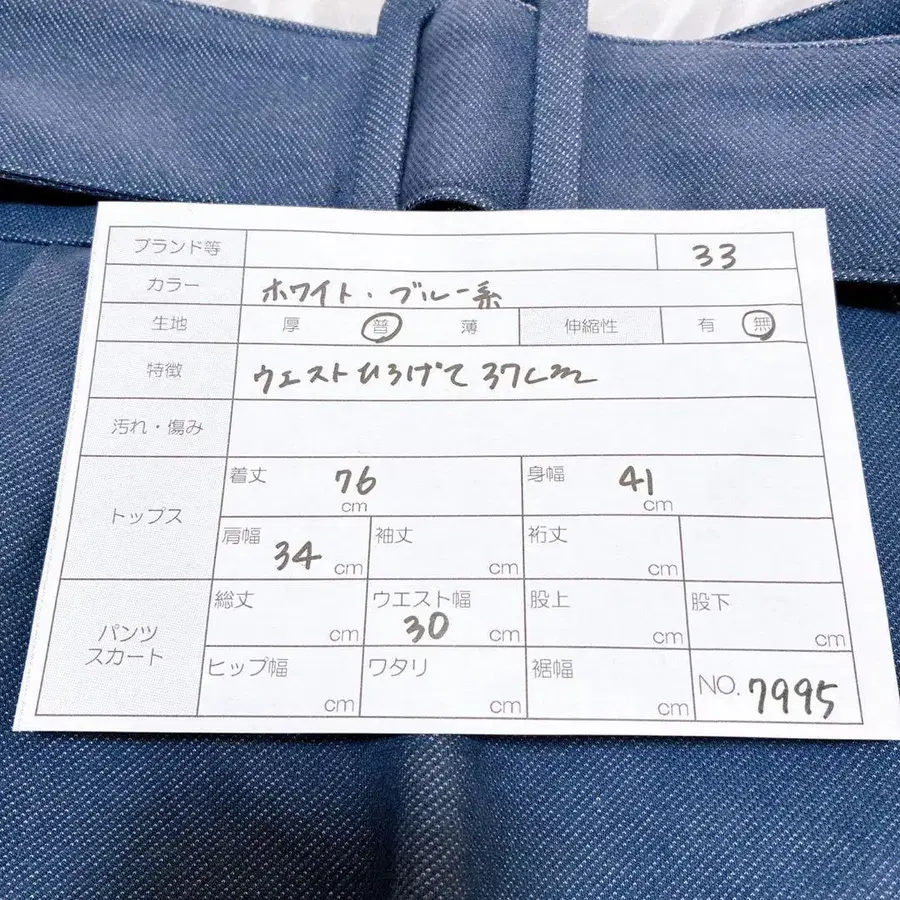 ブランド等 33
カラー ホワイト・ブルー系
生地 厚 普 薄 伸縮性 有 無
特徴 ウエストひろげて37cm
汚れ・傷み
トップス 着丈 76 cm 身幅 41 cm
肩幅 34 cm 袖丈 cm 裄丈 cm
パンツ スカート 総丈 cm ウエスト幅 30 cm 股上 cm 股下 cm
ヒップ幅 cm ワタリ cm 裾幅 cm NO. 7995